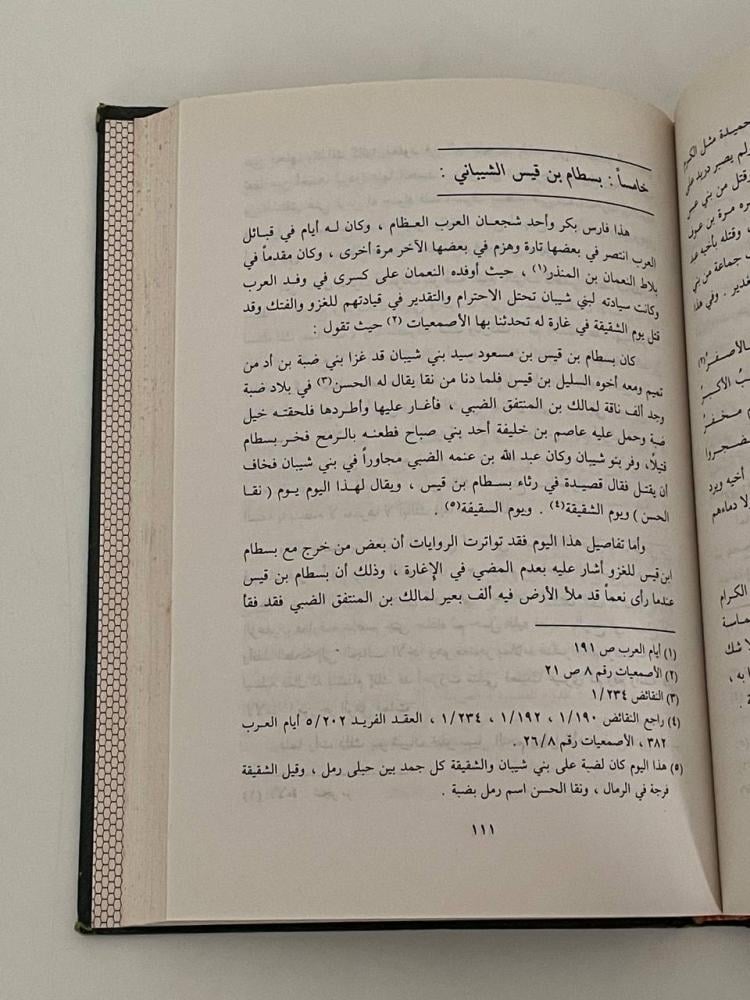 خامساً : بسطام بن قيس الشيباني :
هذا فارس بكر وأحد شجعان العرب العظام ، وكان له أيام في قبائل
العرب انتصر في بعضها تارة وهزم في بعضها الآخر مرة أخرى ، وكان مقدماً في
بلاط النعمان بن المنذر(١) ، حيث أوفده النعمان على كسرى في وفد العرب
وكانت سيادته لبني شيبان تحتل الاحترام والتقدير في قيادتهم للغزو والفتك وقد
قتل يوم الشقيقة في غارة له تحدثنا بها الأصمعيات (٢) حيث تقول :
كان بسطام بن قيس بن مسعود سيد بني شيبان قد غزا بني ضبة بن أد من
تميم ومعه أخوه السليل بن قيس فلما دنا من نقا يقال له الحسن(٣) في بلاد ضبة
وجد ألف ناقة لمالك بن المنتفق الضبي ، فأغار عليها وأطردها فلحقته خيل
ضبة وحمل عليه عاصم بن خليفة أحد بني صباح فطعنه بالرمح فخر بسطام
قتيلاً، وفر بنو شيبان وكان عبد الله بن عنمه الضبي مجاوراً في بني شيبان فخاف
أن يقتل فقال قصيدة في رثاء بسطام بن قيس ، ويقال لهذا اليوم يوم ( نقا
الحسن ) ويوم الشقيقة(٤) . ويوم السقيفة(٥) .
وأما تفاصيل هذا اليوم فقد تواترت الروايات أن بعض من خرج مع بسطام
ابن قيس للغزو أشار عليه بعدم المضي في الإغارة ، وذلك أن بسطام بن قيس
عندما رأى نعماً قد ملأ الأرض فيه ألف بعير لمالك بن المنتفق الضبي فقد فقأ
(١) أيام العرب ص ١٩١
(٢) الأصمعيات رقم ٨ ص ٢١
(٣) النقائض ١/٢٣٤
(٤) راجع النقائض ١/١٩٠ ، ١/١٩٢ ، ١/٢٣٤ ، العقد الفريد ٥/٢٠٢ أيام العرب
٣٨٢ ، الأصمعيات رقم ٢٦/٨ .
(٥) هذا اليوم كان لضبة على بني شيبان والشقيقة كل جمد بين حبلى رمل ، وقيل الشقيقة
فرجة في الرمال ، ونقا الحسن اسم رمل بضبة .
١١١
حميدة مثل الكرم
ولم يصبر دريد على
وقتل من بني عبس
، وقتله بأخيه عبد
جماعة من بني
غدير . وفي هذا
أخيه ويرد
لا دماءهم
الكرام
لا شك